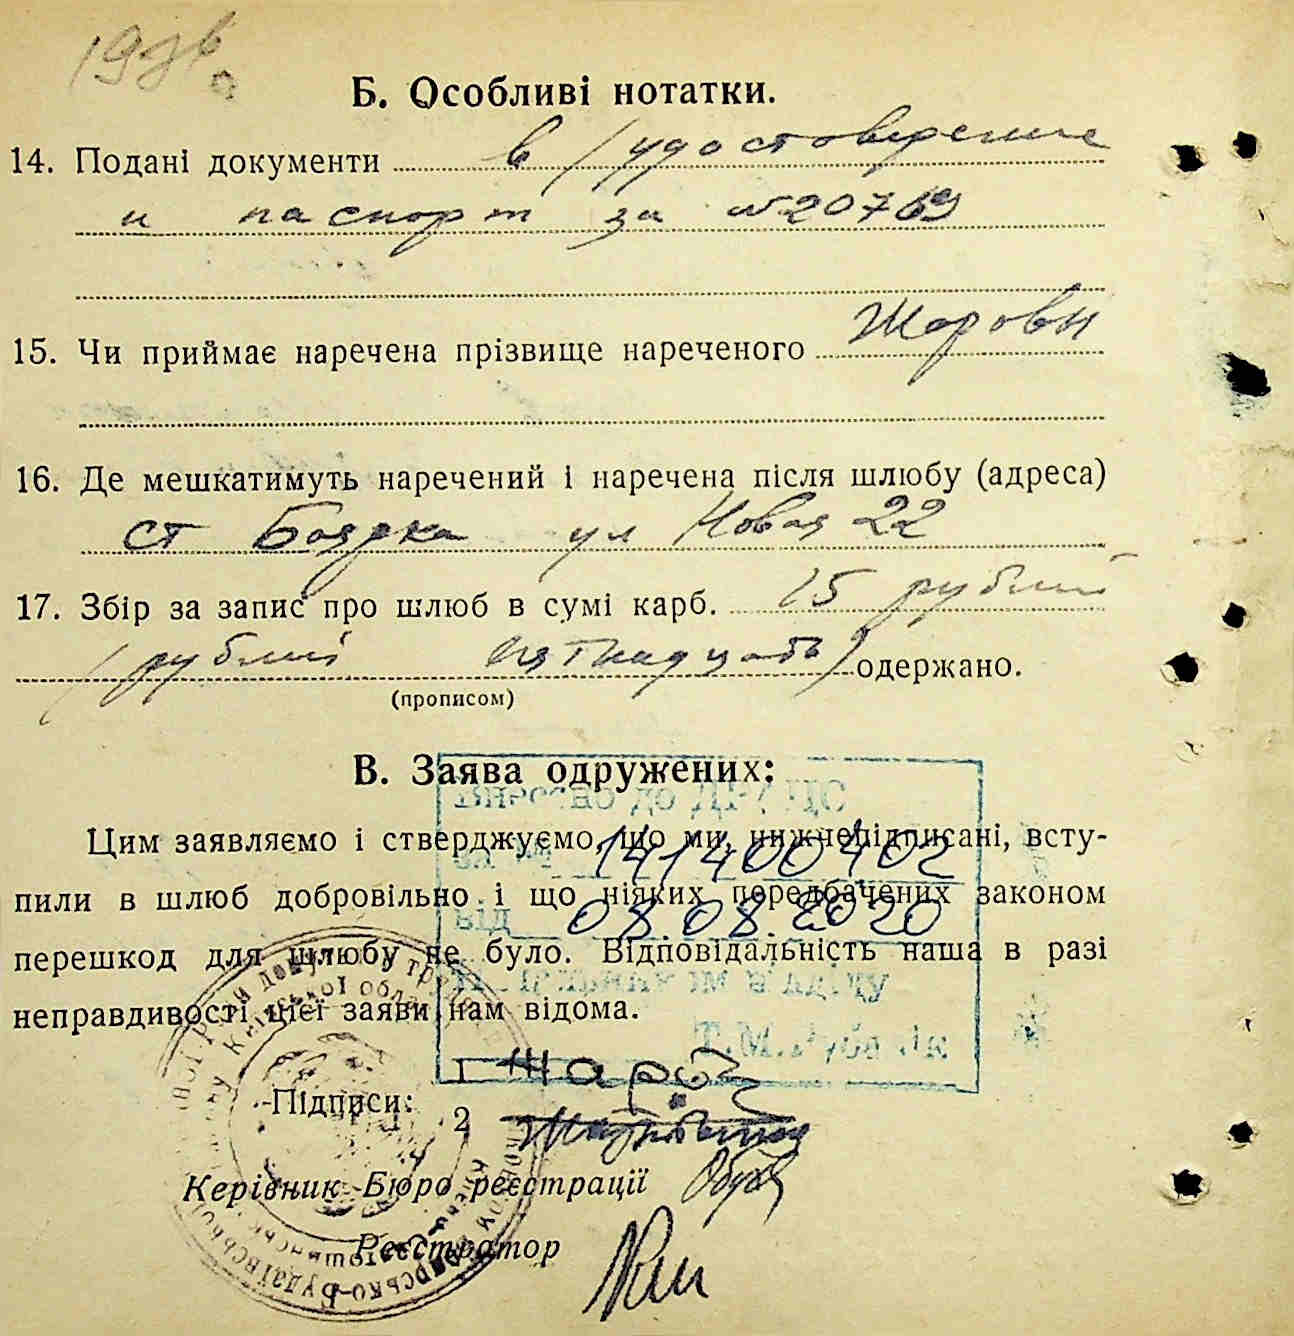 Б. Особливі нотатки.
14. Подані документи в/удостоверение
и паспорт за №20769
15. Чи приймає наречена прізвище нареченого Жаровы
16. Де мешкатимуть наречений і наречена після шлюбу (адреса)
ст Боярка ул Новая 22
17. Збір за запис про шлюб в сумі карб. 15 рублей
(рублей пятнадцать) одержано.
(прописом)
В. Заява одружених:
Цим заявляємо і стверджуємо, що ми, нижчепідписані, всту-
пили в шлюб добровільно і що ніяких передбачених законом
перешкод для шлюбу не було. Відповідальність наша в разі
неправдивості цієї заяви нам відома.
141400402
від 08.08.2020
Підписи: 1
2
Керівник Бюро реєстрації
Реєстратор